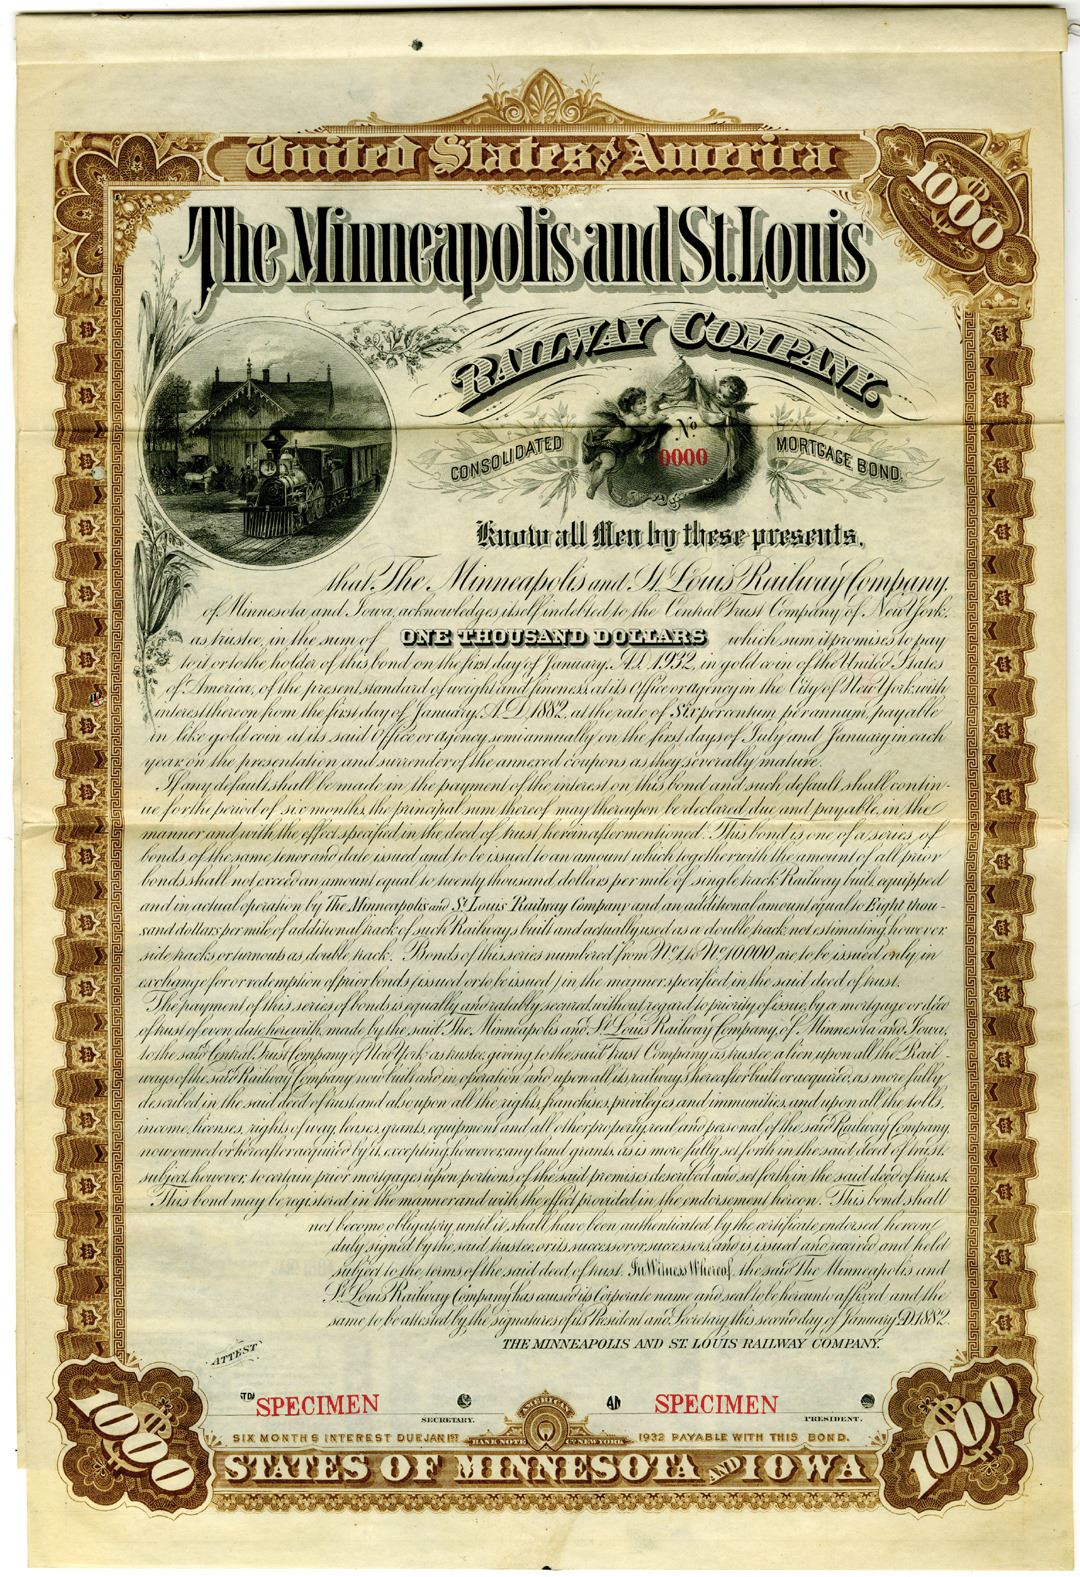 United States of America
$1000
The Minneapolis and St. Louis
RAILWAY COMPANY.
CONSOLIDATED
No
0000
MORTGAGE BOND.
Know all Men by these presents,
that The Minneapolis and St. Louis Railway Company,
of Minnesota and Iowa, acknowledges itself indebted to the Central Trust Company of New York,
as trustee, in the sum of ONE THOUSAND DOLLARS which sum it promises to pay
to it or to the holder of this bond on the first day of January, A.D. 1932, in gold coin of the United States
of America, of the present standard of weight and fineness, at its Office or agency in the City of New York, with
interest thereon from the first day of January, A.D. 1882, at the rate of Six per centum per annum, payable
in like gold coin at its said Office or agency semi annually on the first days of July and January in each
year on the presentation and surrender of the annexed coupons as they severally mature.
If any default shall be made in the payment of the interest on this bond and such default shall contin-
ue for the period of six months, the principal sum thereof may thereupon be declared due and payable, in the
manner and with the effect specified in the deed of trust hereinafter mentioned. This bond is one of a series of
bonds of the same tenor and date issued and to be issued to an amount which together with the amount of all prior
bonds shall not exceed an amount equal to twenty thousand dollars per mile of single track Railway built, equipped
and in actual operation by The Minneapolis and St. Louis Railway Company and an additional amount equal to Eight thou-
sand dollars per mile of additional track of such Railways built and actually used as a double track, not estimating however
side tracks or turnouts as double track. Bonds of this series numbered from No. 1 to No. 10000 are to be issued only in
exchange for or redemption of prior bonds (issued or to be issued) in the manner specified in the said deed of trust.
The payment of this series of bonds is equally and ratably secured, without regard to priority of issue, by a mortgage or deed
of trust of even date herewith, made by the said The Minneapolis and St. Louis Railway Company, of Minnesota and Iowa,
to the said Central Trust Company of New York as trustee, giving to the said Trust Company as trustee a lien upon all the Rail-
ways of the said Railway Company now built and in operation and upon all its railways hereafter built or acquired, as more fully
described in the said deed of trust and also upon all the rights, franchises, privileges and immunities, and upon all the tolls,
income, licenses, rights of way, leases, grants, equipment and all other property, real and personal of the said Railway Company,
now owned or hereafter acquired by it, excepting, however, any land grants, as is more fully set forth in the said deed of trust,
subject, however, to certain prior mortgages upon portions of the said premises described and set forth in the said deed of trust.
This bond may be registered in the manner and with the effect provided in the endorsement hereon. This bond shall
not become obligatory until it shall have been authenticated by the certificate endorsed hereon,
duly signed by the said trustee, or its successor or successors, and is issued and received and held
subject to the terms of the said deed of trust. In Witness Whereof, the said The Minneapolis and
St. Louis Railway Company has caused its Corporate name and seal to be hereunto affixed and the
same to be attested by the signatures of its President and Secretary this second day of January A.D. 1882.
THE MINNEAPOLIS AND ST. LOUIS RAILWAY COMPANY.
ATTEST
SPECIMEN
SECRETARY.
SPECIMEN
PRESIDENT.
SIX MONTHS INTEREST DUE JAN 1ST 1932 PAYABLE WITH THIS BOND.
AMERICAN
BANK NOTE CO. NEW YORK
$1000
STATES OF MINNESOTA AND IOWA
$1000